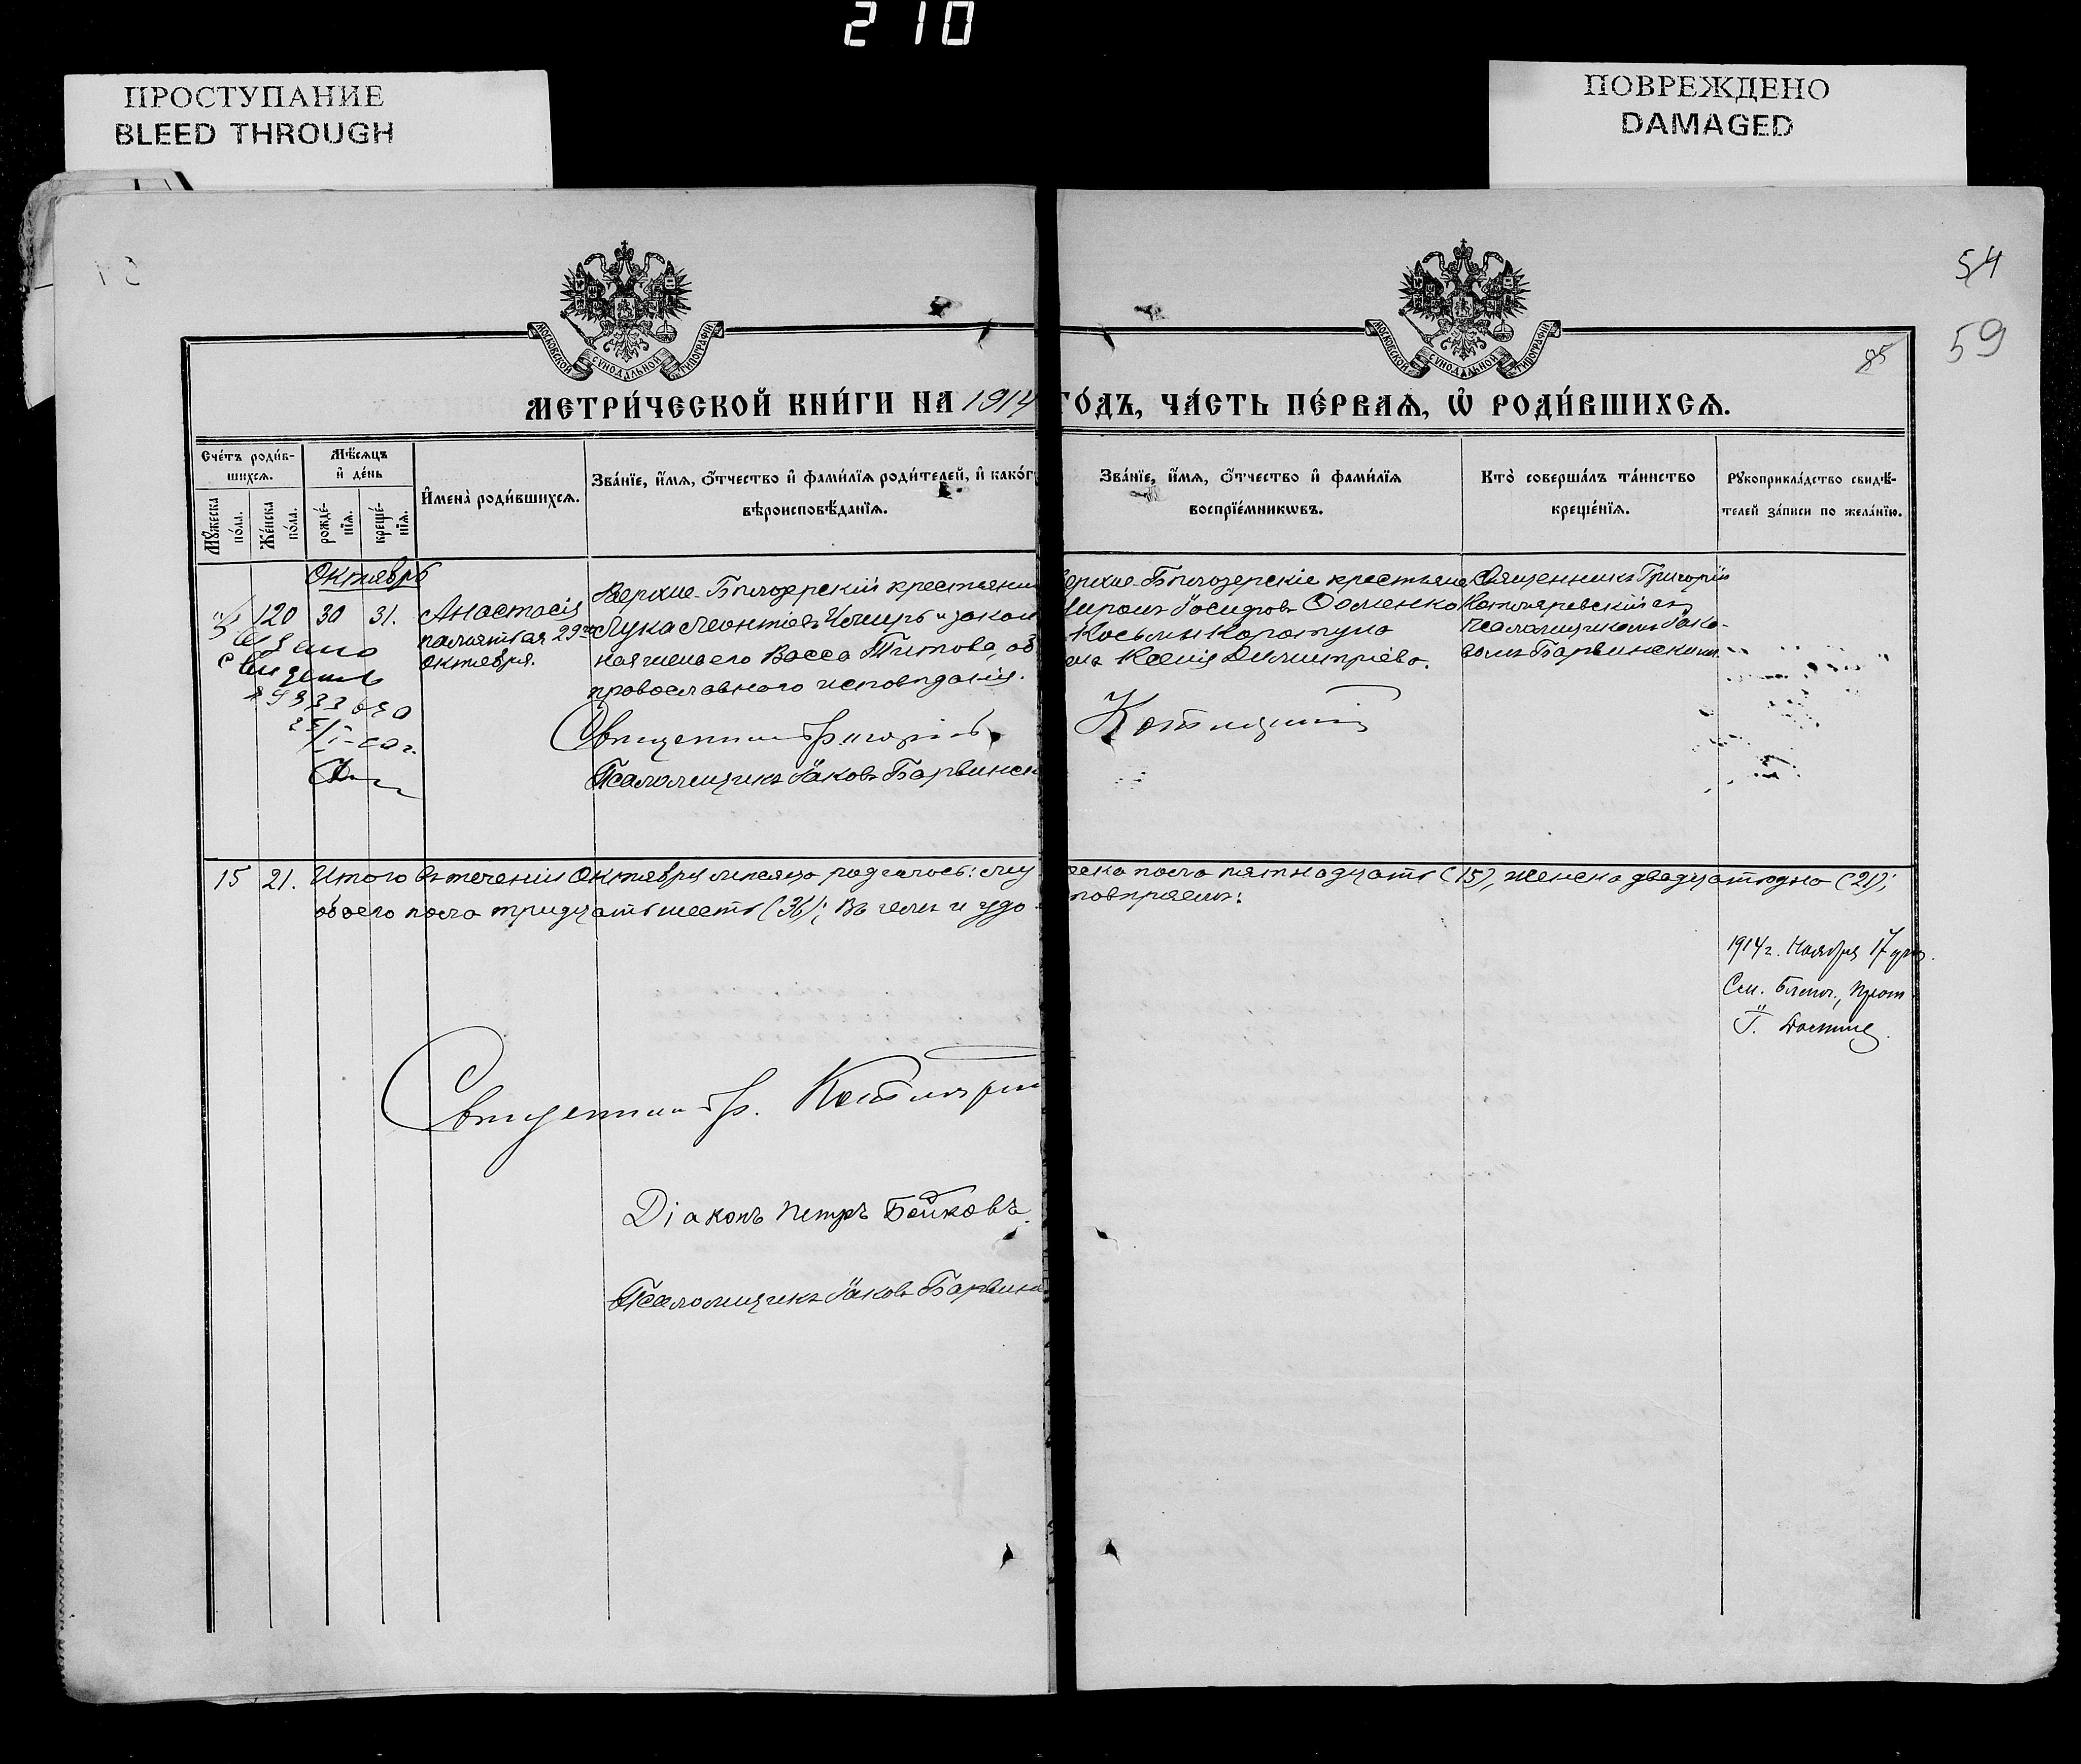 210
ПРОСТУПАНИЕ
BLEED THROUGH
ПОВРЕЖДЕНО
DAMAGED
54
59
85
МОСКОВСКОЙ СѴНОДАЛЬНОЙ ТИПОГРАФІИ
МОСКОВСКОЙ СѴНОДАЛЬНОЙ ТИПОГРАФІИ
МЕТРИ́ЧЕСКОЙ КНИ́ГИ НА 1914 ГО́ДЪ, ЧА́СТЬ ПЕ́РВАѦ, Ѡ҆ РОДИ́ВШИХСѦ.
Сче́тъ роди́в-
шихсѧ.
Мꙋ́жеска по́ла.
Же́нска по́ла.
Мѣ́сѧцъ
и҆ де́нь
рожде́-
нїѧ.
креще́-
нїѧ.
И҆мена̀ роди́вшихсѧ.
Зва́нїе, и҆́мѧ, ѻ҆́тчество и҆ фами́лїѧ роди́телей, и҆ како́г
вѣроисповѣ́данїѧ.
Зва́нїе, и҆́мѧ, ѻ҆́тчество и҆ фами́лїѧ
воспрїе́мникѡвъ.
Кто̀ соверша́лъ та́инство
креще́нїѧ.
Рꙋкоприкла́дство свидѣ́-
телей за́писи по жела́нїю.
Октябрь
120 30 31.
Анастасія
памятная 29го
октября.
Верхне-Бѣлозерскій крестьянин
Лука Леонтіевъ и закон
ная жена его Васса Титова, об
православнаго исповѣданія.
Священникъ Григорій
Псаломщикъ Іаковъ Барвинск
ерхне-Бѣлозерскіе крестьяне
Косьмы Коротуна
Ксенія Димитріева.
Священникъ Григорій
Котляревскій съ
псаломщикомъ Іако-
вомъ Барвинскимъ.
15 21. Итого въ теченіи Октября мѣсяца родилось: му жеска пола пятнадцать (15), женска двадцать одна (21);
обоего пола тридцать шесть (36); Въ чемъ и удо стовѣряемъ:
1914 г. Ноября 17
Священникъ Гр. Котляре
Діаконъ Петръ Бойковъ.
Псаломщикъ Іаковъ Барвинс